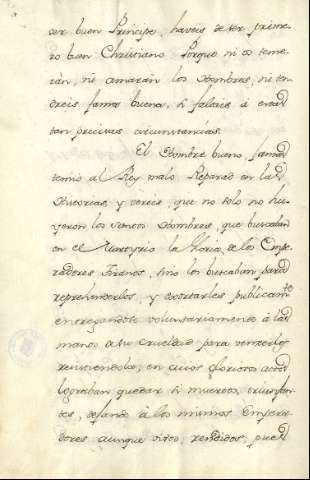 ser buen Principe, haveis de ser prime-
ro buen Christiano. Porque ni os teme-
ràn, ni amaràn los Hombres, ni ten-
dreis fama buena, si faltais à estas
tan precisas circunstancias.
El Hombre bueno, jamas
temio al Rey malo. Reparad en las
Historias, y vereis, que no solo no hu-
yeron los Santos Hombres, que buscaban
en el Martyrio la Gloria, de los Empe-
radores Tiranos, sino los buscaban para
reprehenderlos, y exortarles publicamte
entregandose voluntariamente à las
manos de su crueldad para vencerlos
resistiendola; en cuios gloriosos actos
lograban quedar si muertos, triunfan-
tes, dejando à los mismos Empera-
dores aunque vivos, rendidos; pues